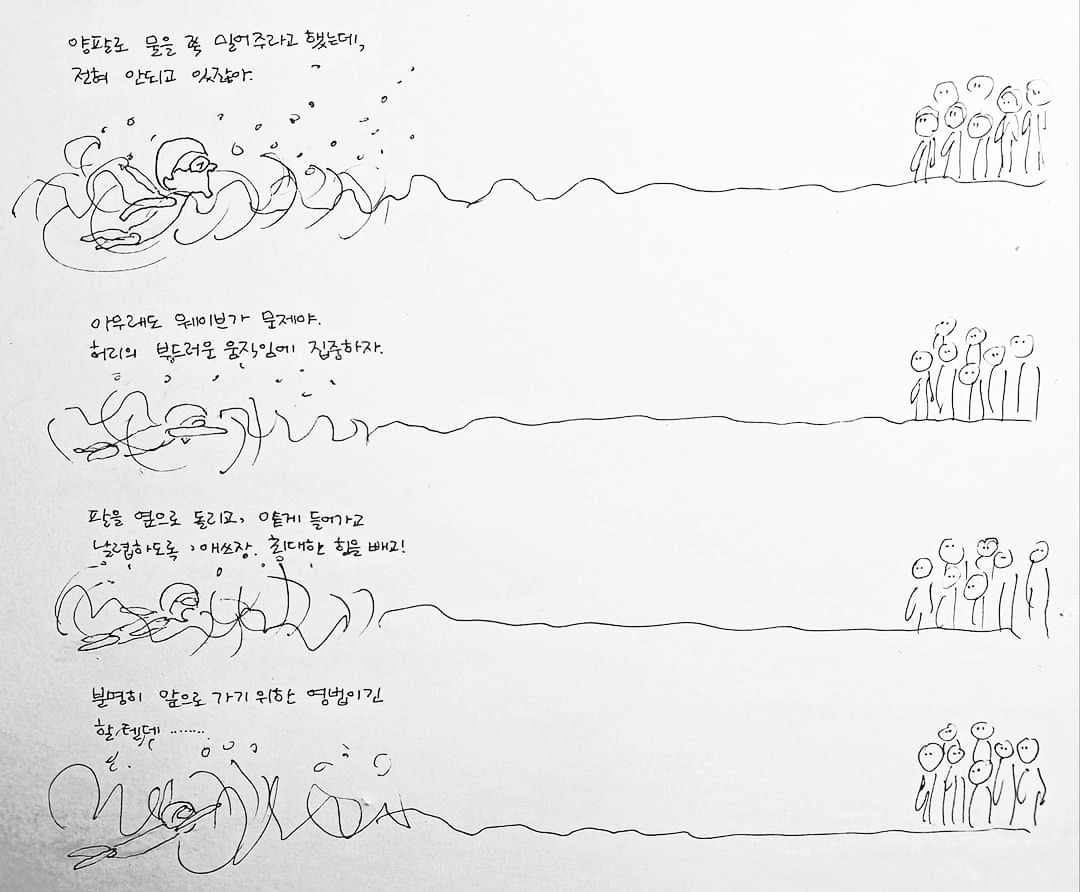 양팔로 물을 쭉 밀어주라고 했는데,
전혀 안되고 있잖아.
아무래도 웨이브가 문제야.
허리의 부드러운 움직임에 집중하자.
팔을 옆으로 돌리고, 얕게 들어가고
날렵하도록, 애쓰장. 최대한 힘을 빼고!
분명히 앞으로 가기 위한 영법이긴
할텐데 ........